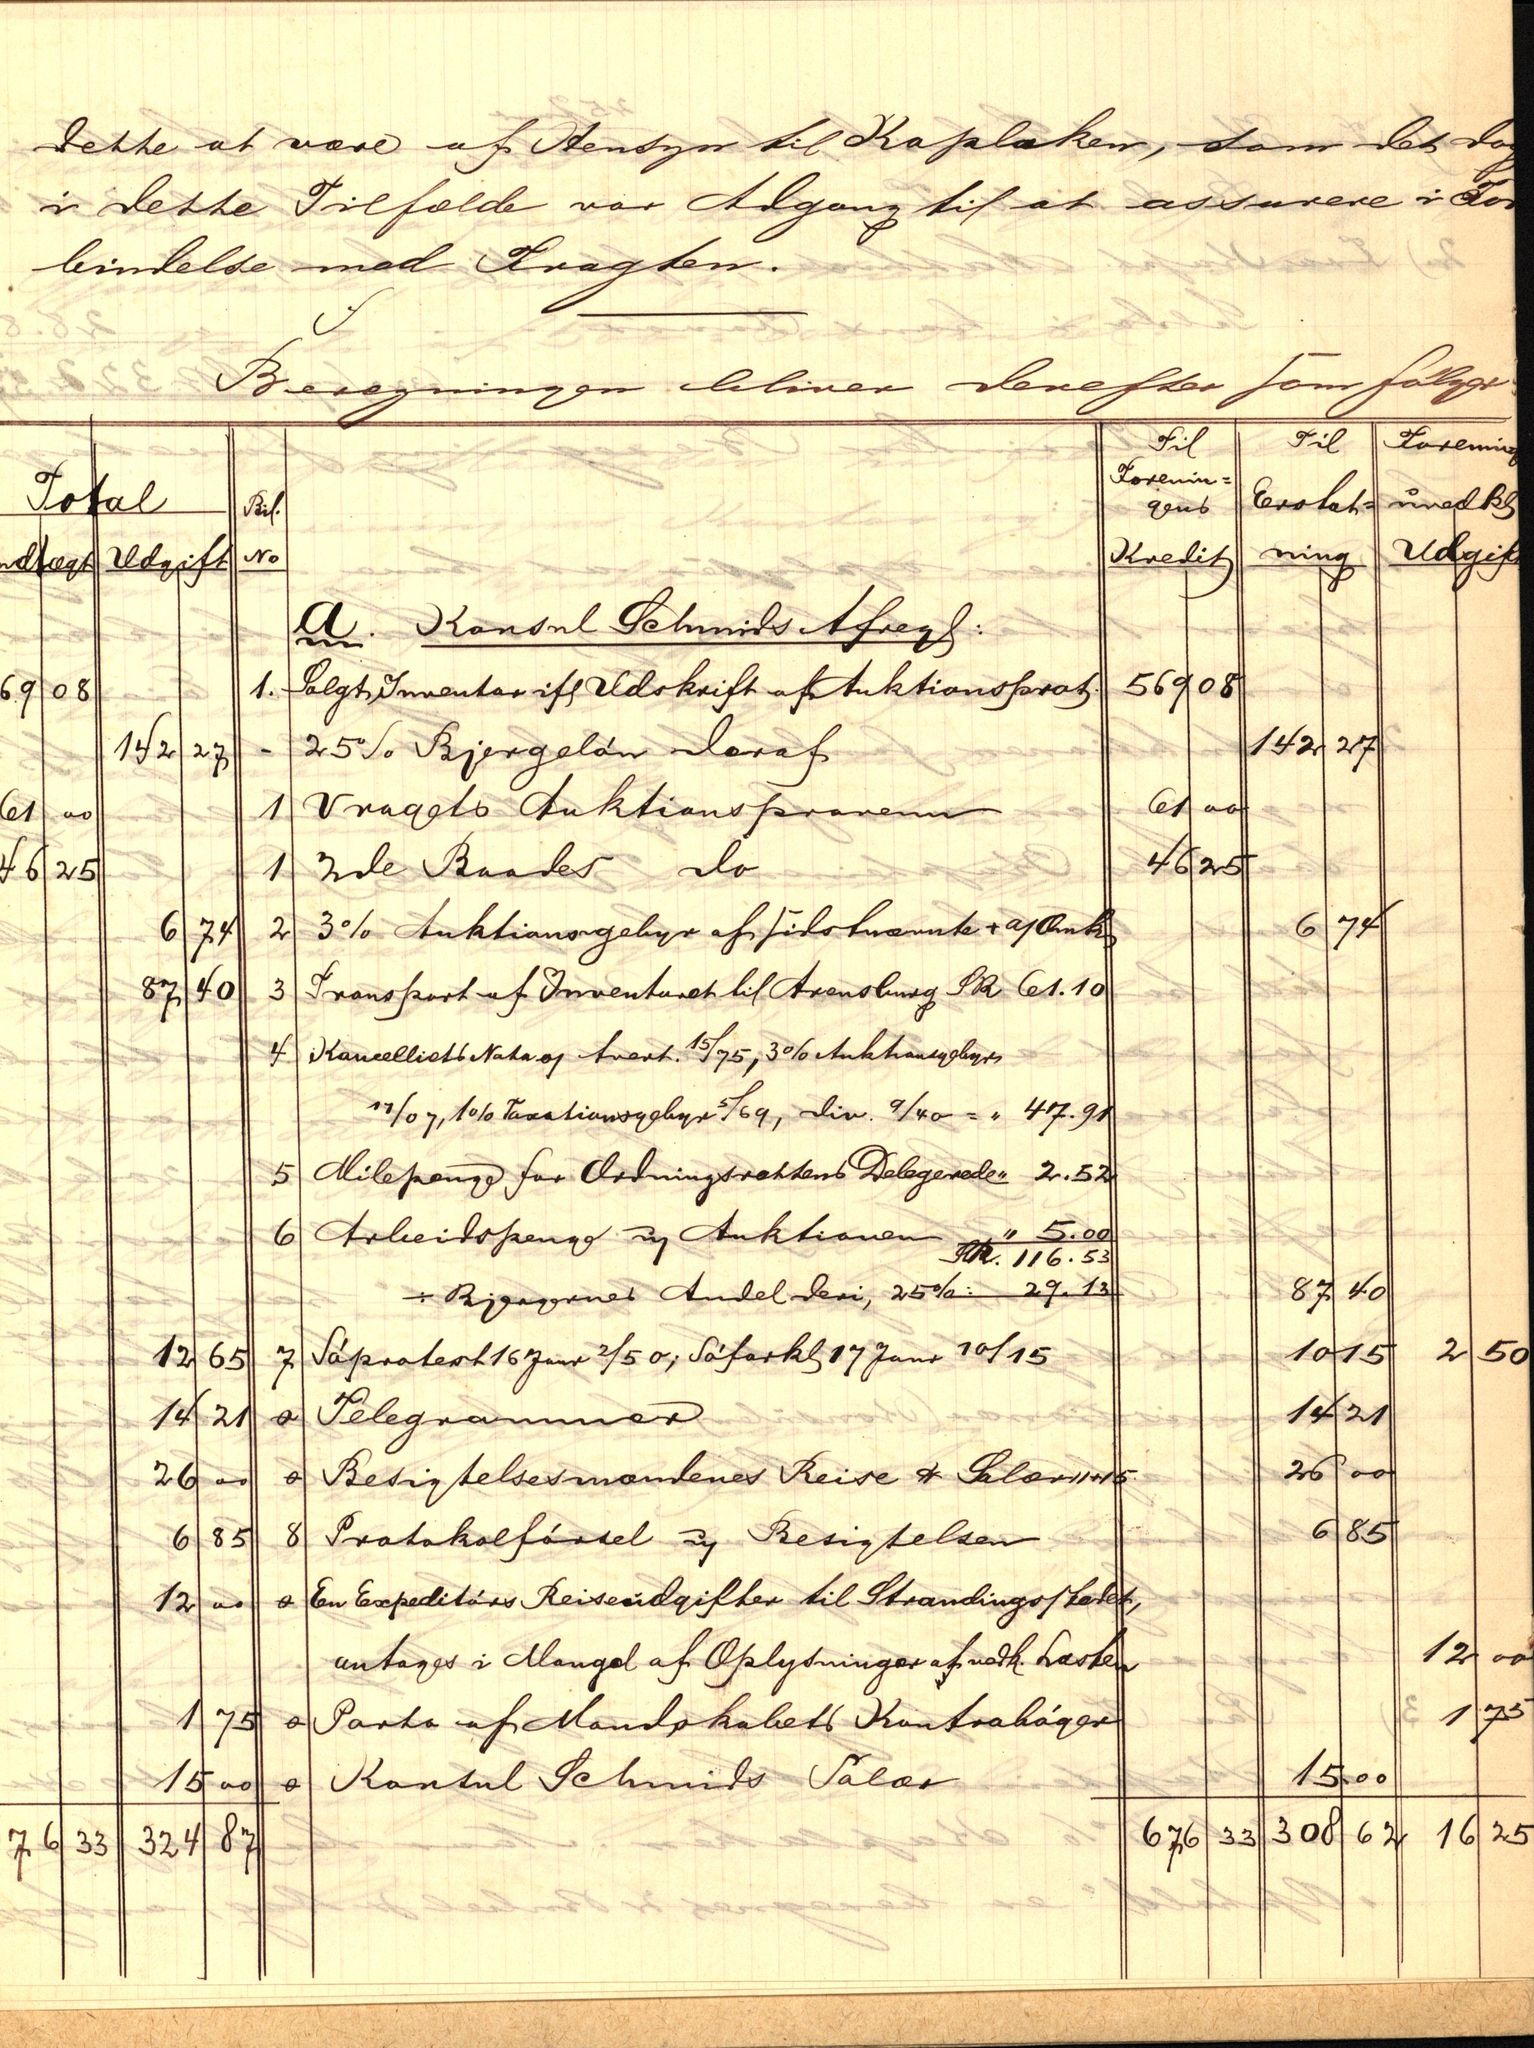 dette at være af Hensyn til Kaplaken, som det dog
i dette Tilfælde var Adgang til at assurere i For
bindelse med Fragten.
Beregningen bliver derefter som følger
Total Bil. Til Forenin= gens Til Erstat= Forening
Udgift No Kredit ning Udgift
a. Konsul Schmids Afregn:
69 08 1. Solgt Inventar ifl Udskrift af Auktionsprot. 569 08
142 27 - 25% Bjergeløn deraf 142 27
61 00 1 Vragets Auktionsprovenu 61 00
46 25 1 2de Baades do 46 25
6 74 2 3% Auktionsgebyr af sidstnævnte + 6 74
87 40 3 Transport af Inventaret til Arensburg SR 61.10
4 Kancelliets Nota og Avert. 15/75, 3% Auktionsgebyr
17/07, 1% Taxationsgebyr 5/69, div. 9/40 = " 47.91
5 Milepenge for Ordningsrettens Delegerede " 2.52
6 Arbeidspenge v Auktionen " 5.00
SR. 116.53
÷ Bjergernes Andel deri, 25%: 29.13 87 40
12 65 7 Søprotest 16 Janr 2/50; Søforkl 17 Janr 10/15 10 15 2 50
14 21 o Telegrammer 14 21
26 00 o Besigtelsesmændenes Reise & Salær 11+15 26 00
6 85 8 Protokolførsel v Besigtelsen 6 85
12 00 o En Expeditørs Reiseudgifter til Strandingsstedet,
antages i Mangel af Oplysninger af vedk. Lasten 12 00
1 75 o Porto af Mandskabets Kontrabøger 1 75
15 00 o Konsul Schmids Salær 15.00
76 33 324 87 676 33 308 62 16 25